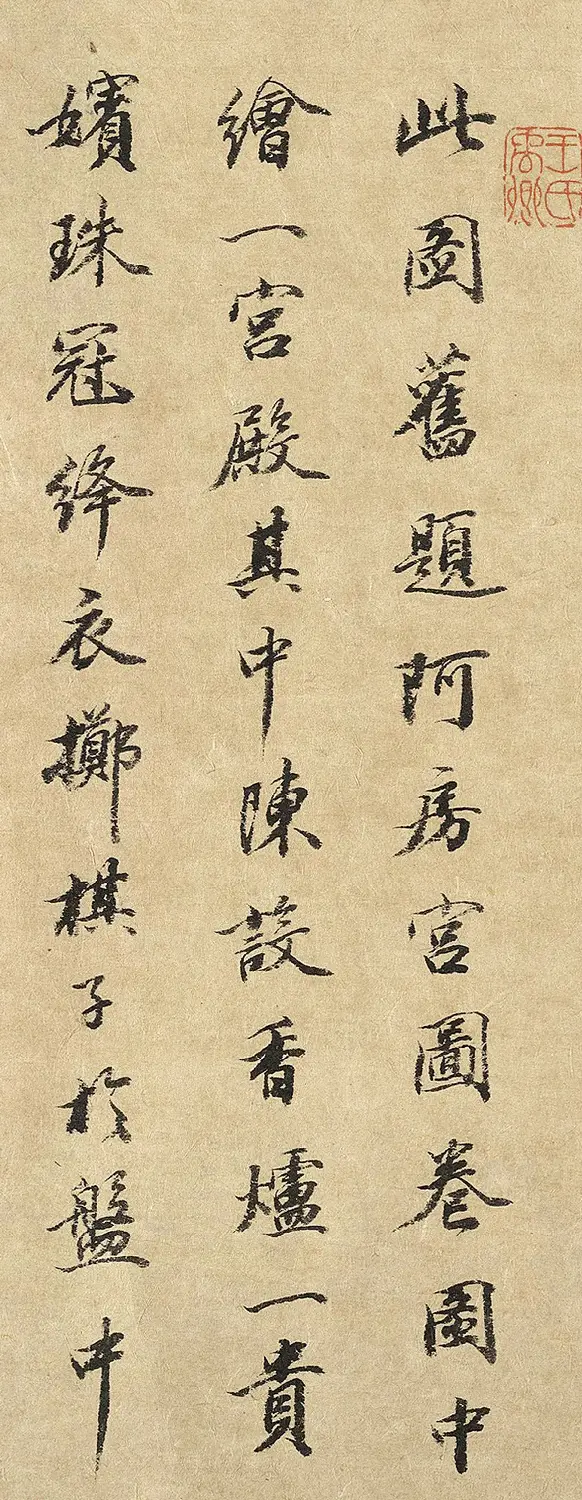 王氏禹卿
此圖舊題阿房宮圖卷圖中
繪一宮殿其中陳設香爐一貴
嬪珠冠絳衣擲棋子於盤中